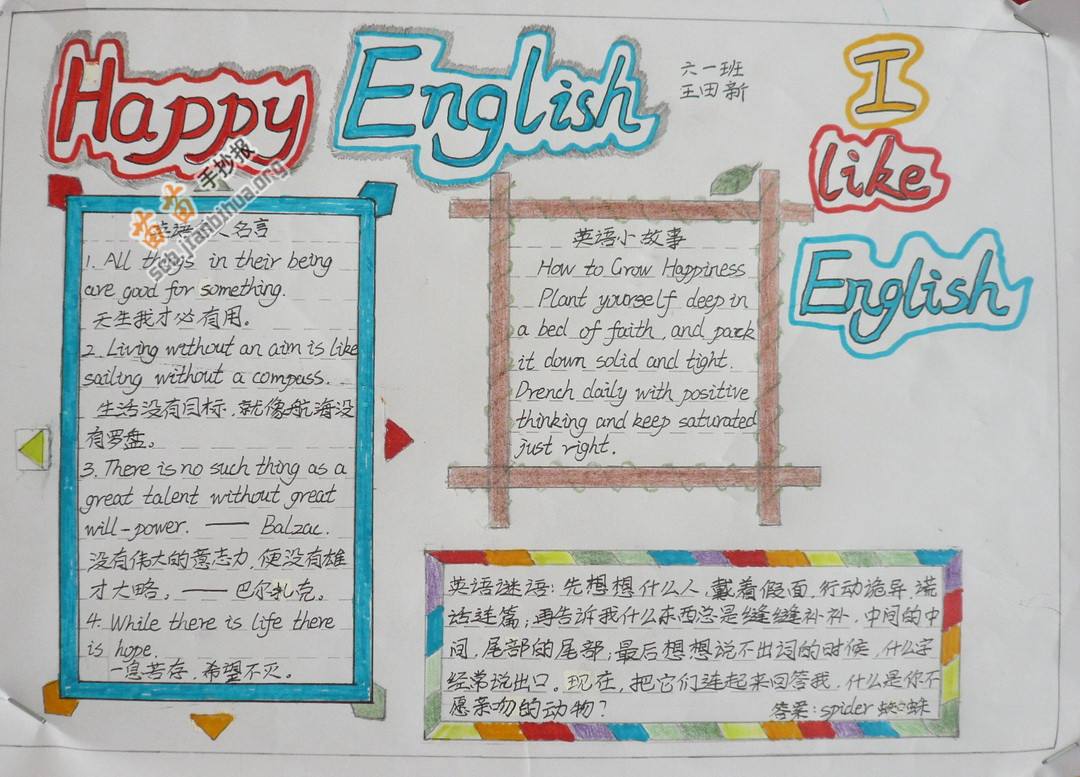 Happy English
六一班
王田新
I
like
English
苗苗手抄报
scb.jianbihua.org
英语 人名言
1. All things in their being
are good for something.
天生我才必有用。
2. Living without an aim is like
sailing without a compass.
生活没有目标,就像航海没
有罗盘。
3. There is no such thing as a
great talent without great
will-power. —— Balzac.
没有伟大的意志力,便没有雄
才大略。——巴尔扎克。
4. While there is life there
is hope.
一息若存,希望不灭。
英语小故事
How to Grow Happiness
Plant yourself deep in
a bed of faith, and pack
it down solid and tight.
Drench daily with positive
thinking and keep saturated
just right.
英语谜语:先想想什么人,戴着假面,行动诡异,谎
话连篇;再告诉我什么东西总是缝缝补补,中间的中
间,尾部的尾部;最后想想说不出词的时候,什么字
经常说出口。现在,把它们连起来回答我,什么是你不
愿亲吻的动物?
答案:spider 蜘蛛